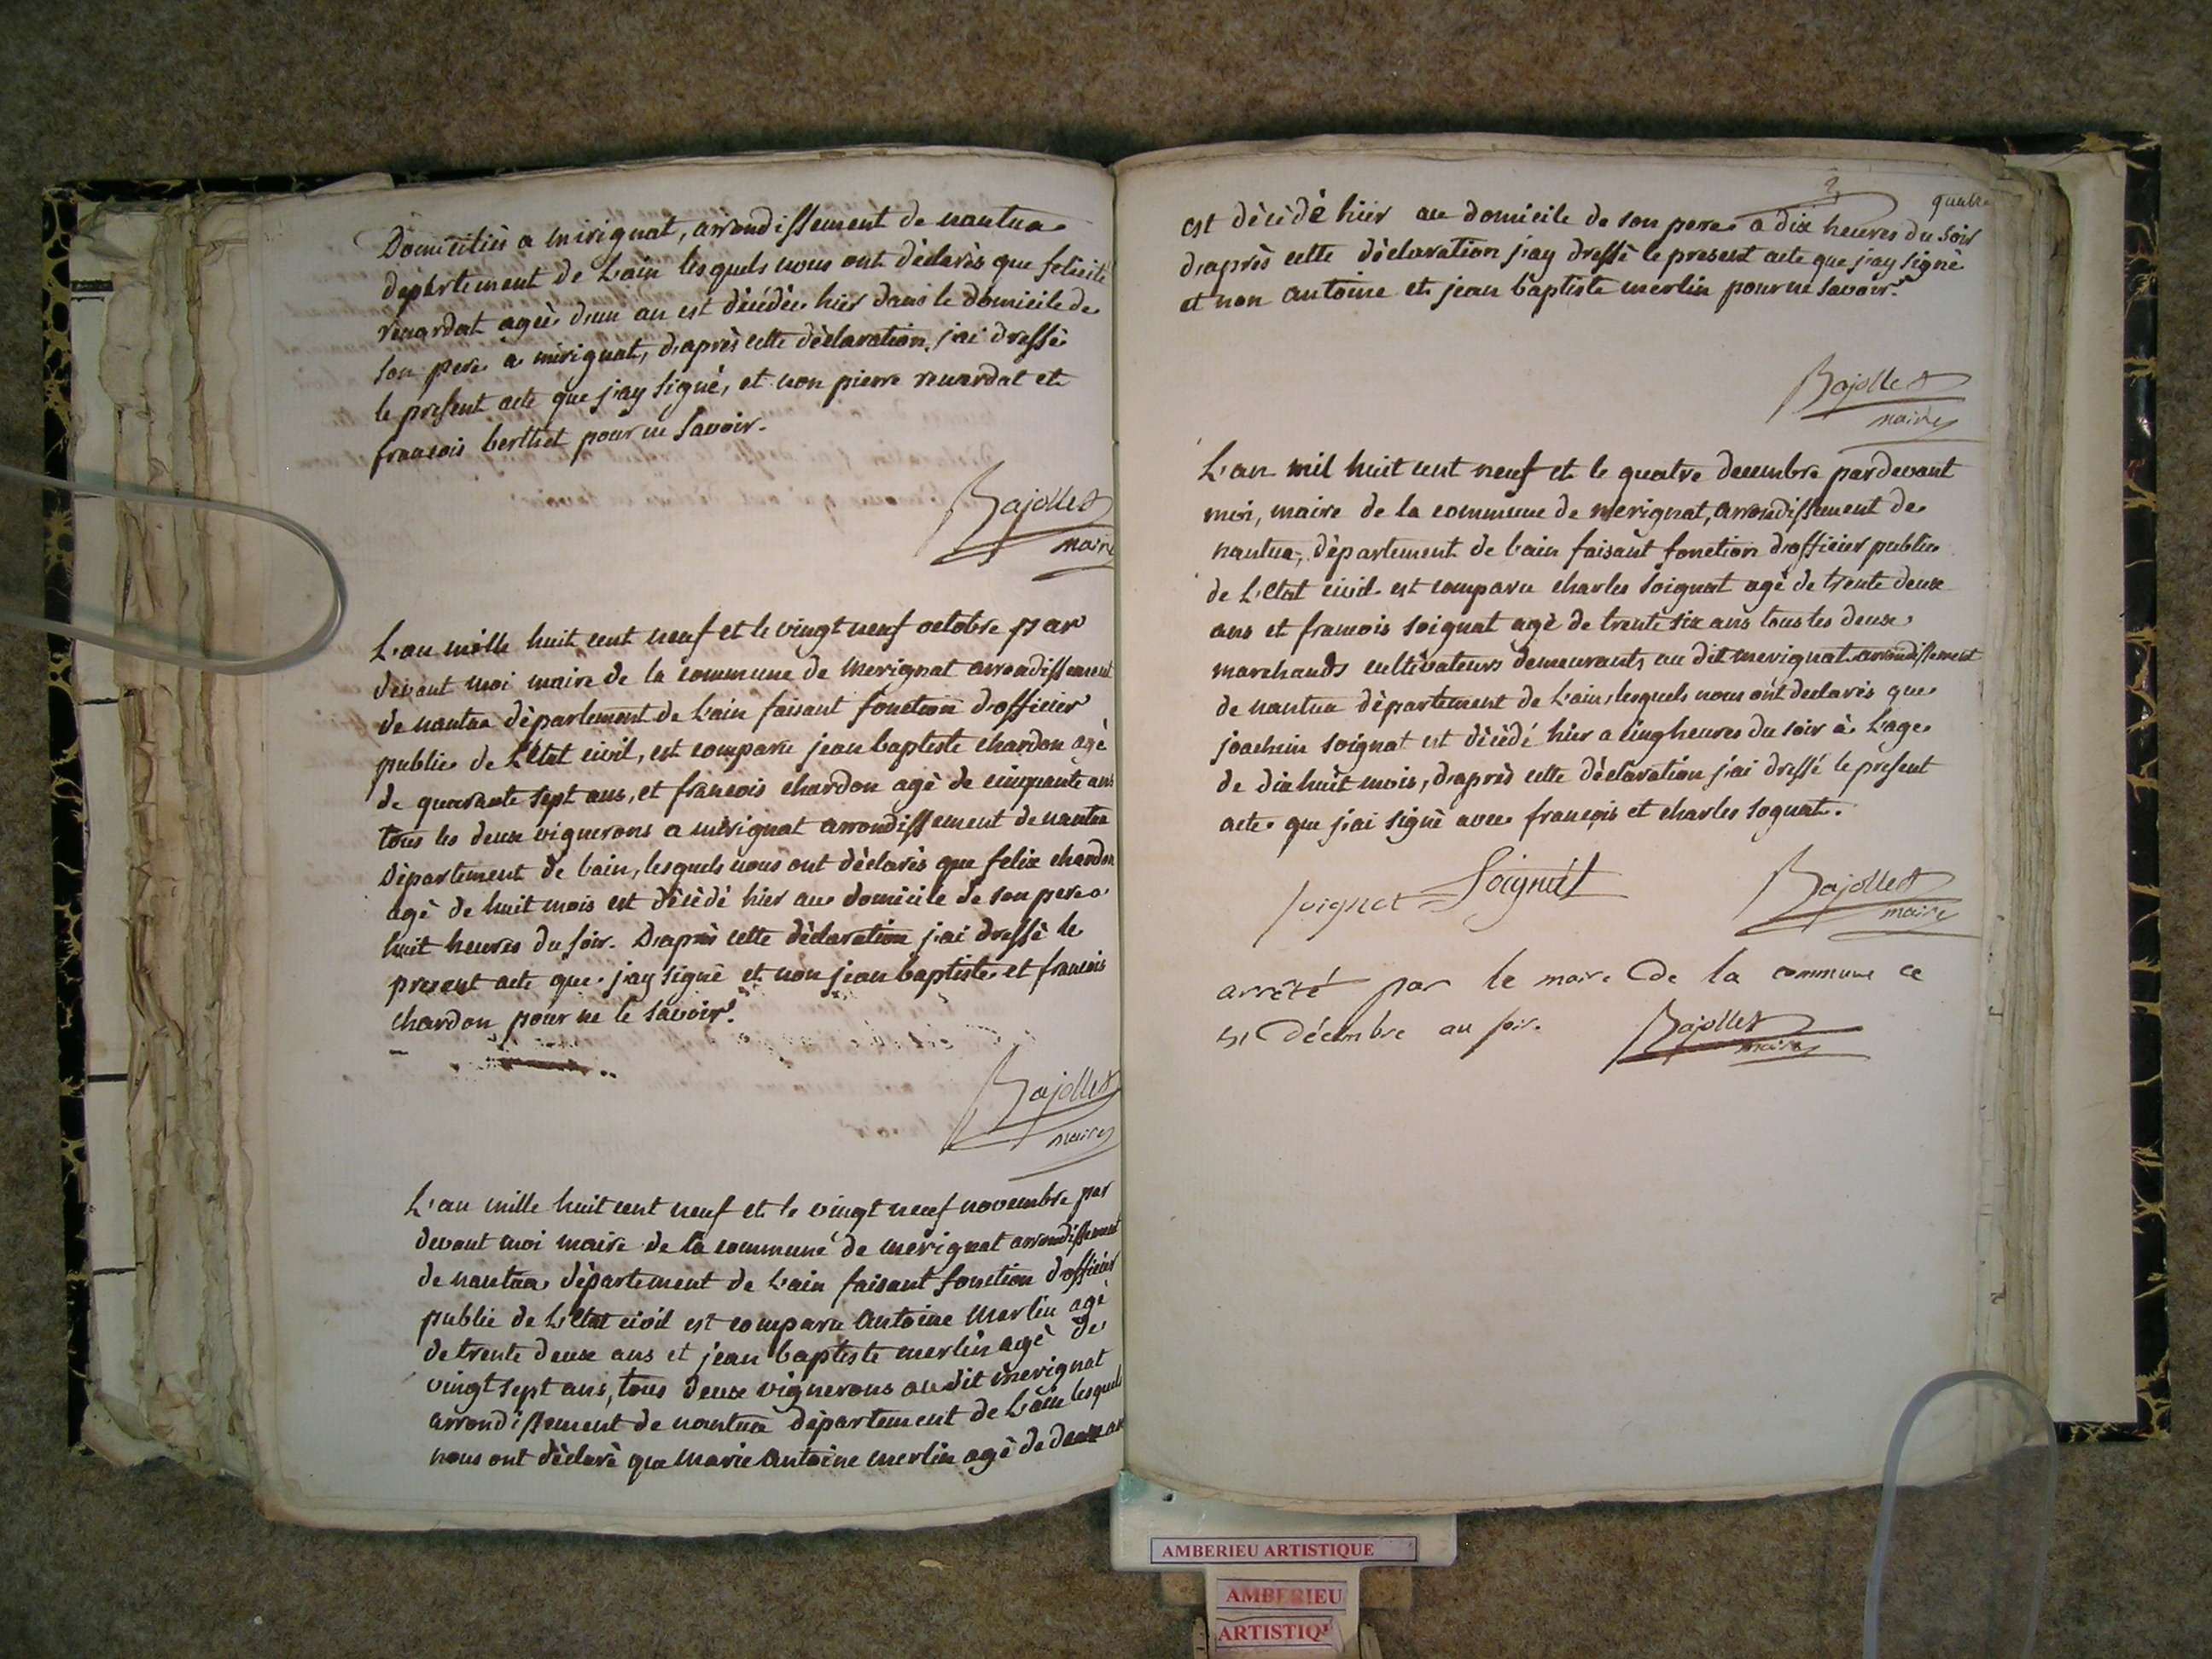 Domicilies a mirignat, arrondissement de nantua
departement de L'ain lesquels nous ont dèclarès que felicité
renardat ageè d'un an est dècèdèe hier dans le domicile de
son pere a mirignat, d'après cette dèclaration, j'ai dressè
le present acte que j'ay signè, et non pierre renardat et
francois berthet pour ne savoir.
Bajollet
maire
L'an mille huit cent neuf et le vingt neuf octobre par
devant moi maire de la commune de merignat arrondissement
de nantua dèpartement de L'ain faisant fonction d'officier
public de L'Etat civil, est comparu jean baptiste chardon agè
de quarante sept ans, et francois chardon agè de cinquante ans
tous les deux vignerons a mèrignat arrondissement de nantua
Dèpartement de l'ain, lesquels nous ont dèclarès que felix chardon
agè de huit mois est dècèdè hier au domicile de son pere a
huit heures du soir. D'après cette dèclaration j'ai dressè le
present acte que j'ay signè et non jean baptiste et francois
chardon pour ne le savoir.
Bajollet
maire
L'an mille huit cent neuf et le vingt neuf novembre par
devant moi maire de la commune de merignat arrondissement
de nantua dèpartement de L'ain faisant fonction d'officier
public de L'Etat civil est comparu Antoine Merlin agè
de trente deux ans et jean baptiste merlin agè de
vingt sept ans, tous deux vignerons audit mèrignat
arrondissement de nantua dèpartement de L'ain lesquels
nous ont dèclarè que Marie Antoine merlin agè de deux an
quatre
est dècèdè hier au domicile de son pere a dix heures du soir
d'après cette dèclaration j'ay dressè le present acte que j'ay signè
et non Antoine et jean baptiste merlin pour ne savoir.
Bajollet
maire
L'an mil huit cent neuf et le quatre decembre pardevant
moi, maire de la commune de merignat, arrondissement de
nantua, dèpartement de l'ain faisant fonction d'officier public
de L'Etat civil est comparu charles soignat agè de trente deux
ans et francois soignat agè de trente six ans tous les deux
marchands cultivateurs demeurants au dit merignat arrondissement
de nantua dèpartement de L'ain, lesquels nous ont declarès que
joachim soignat est dècèdé hier a cinq heures du soir à L'age
de dix huit mois, d'après cette dèclaration j'ai dressé le present
acte que j'ai signè avec françois et charles sognat.
soignat Soignat
Bajollet
maire
arrêté par le maire de la commune ce
31 décembre au soir.
Bajollet
maire
AMBERIEU ARTISTIQUE
AMBERIEU
ARTISTIQ